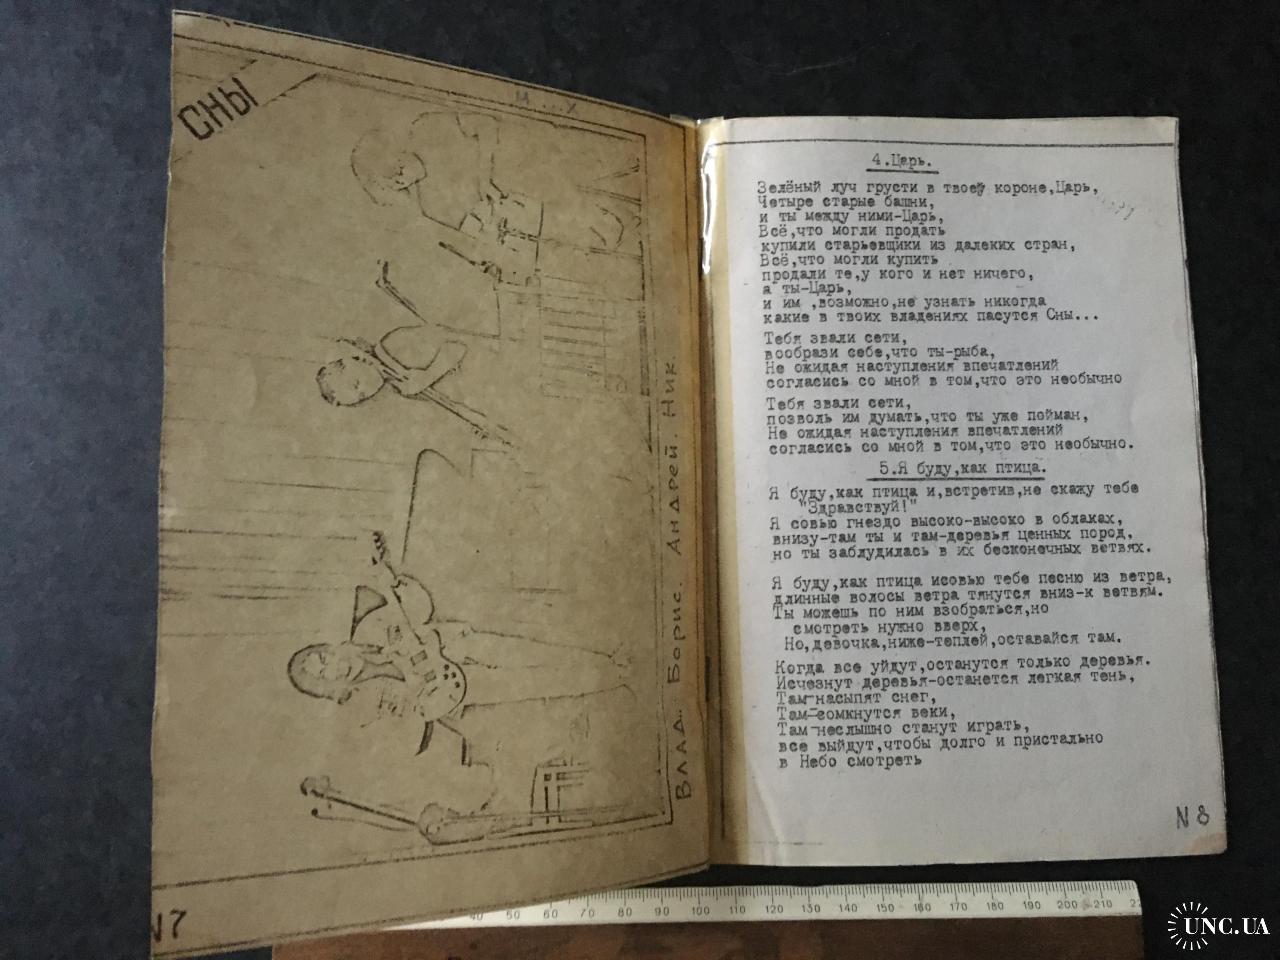 СНЫ
Влад. Борис. Андрей. Ник.
N7
4.Царь.
Зелёный луч грусти в твоей короне,Царь,
Четыре старые башни,
и ты между ними-Царь,
Всё,что могли продать
купили старьевщики из далеких стран,
Всё,что могли купить
продали те,у кого и нет ничего,
а ты-Царь,
и им ,возможно,не узнать никогда
какие в твоих владениях пасутся Сны...
Тебя звали сети,
вообрази себе,что ты-рыба,
Не ожидая наступления впечатлений
согласись со мной в том,что это необычно
Тебя звали сети,
позволь им думать,что ты уже пойман,
Не ожидая наступления впечатлений
согласись со мной в том,что это необычно.
5.Я буду,как птица.
Я буду,как птица и,встретив,не скажу тебе
"Здравствуй!"
Я совью гнездо высоко-высоко в облаках,
внизу-там ты и там-деревья ценных пород,
но ты заблудилась в их бесконечных ветвях.
Я буду,как птица исовью тебе песню из ветра,
длинные волосы ветра тянутся вниз-к ветвям.
Ты можешь по ним взобраться,но
смотреть нужно вверх,
Но,девочка,ниже-теплей,оставайся там.
Когда все уйдут,останутся только деревья.
Исчезнут деревья-останется легкая тень,
Там-насыпят снег,
Там-сомкнутся веки,
Там-неслышно станут играть,
все выйдут,чтобы долго и пристально
в Небо смотреть
N 8
40 50 60 70 80 90 100 110 120 130 140 150 160 170 180 190 200 210
UNC.UA